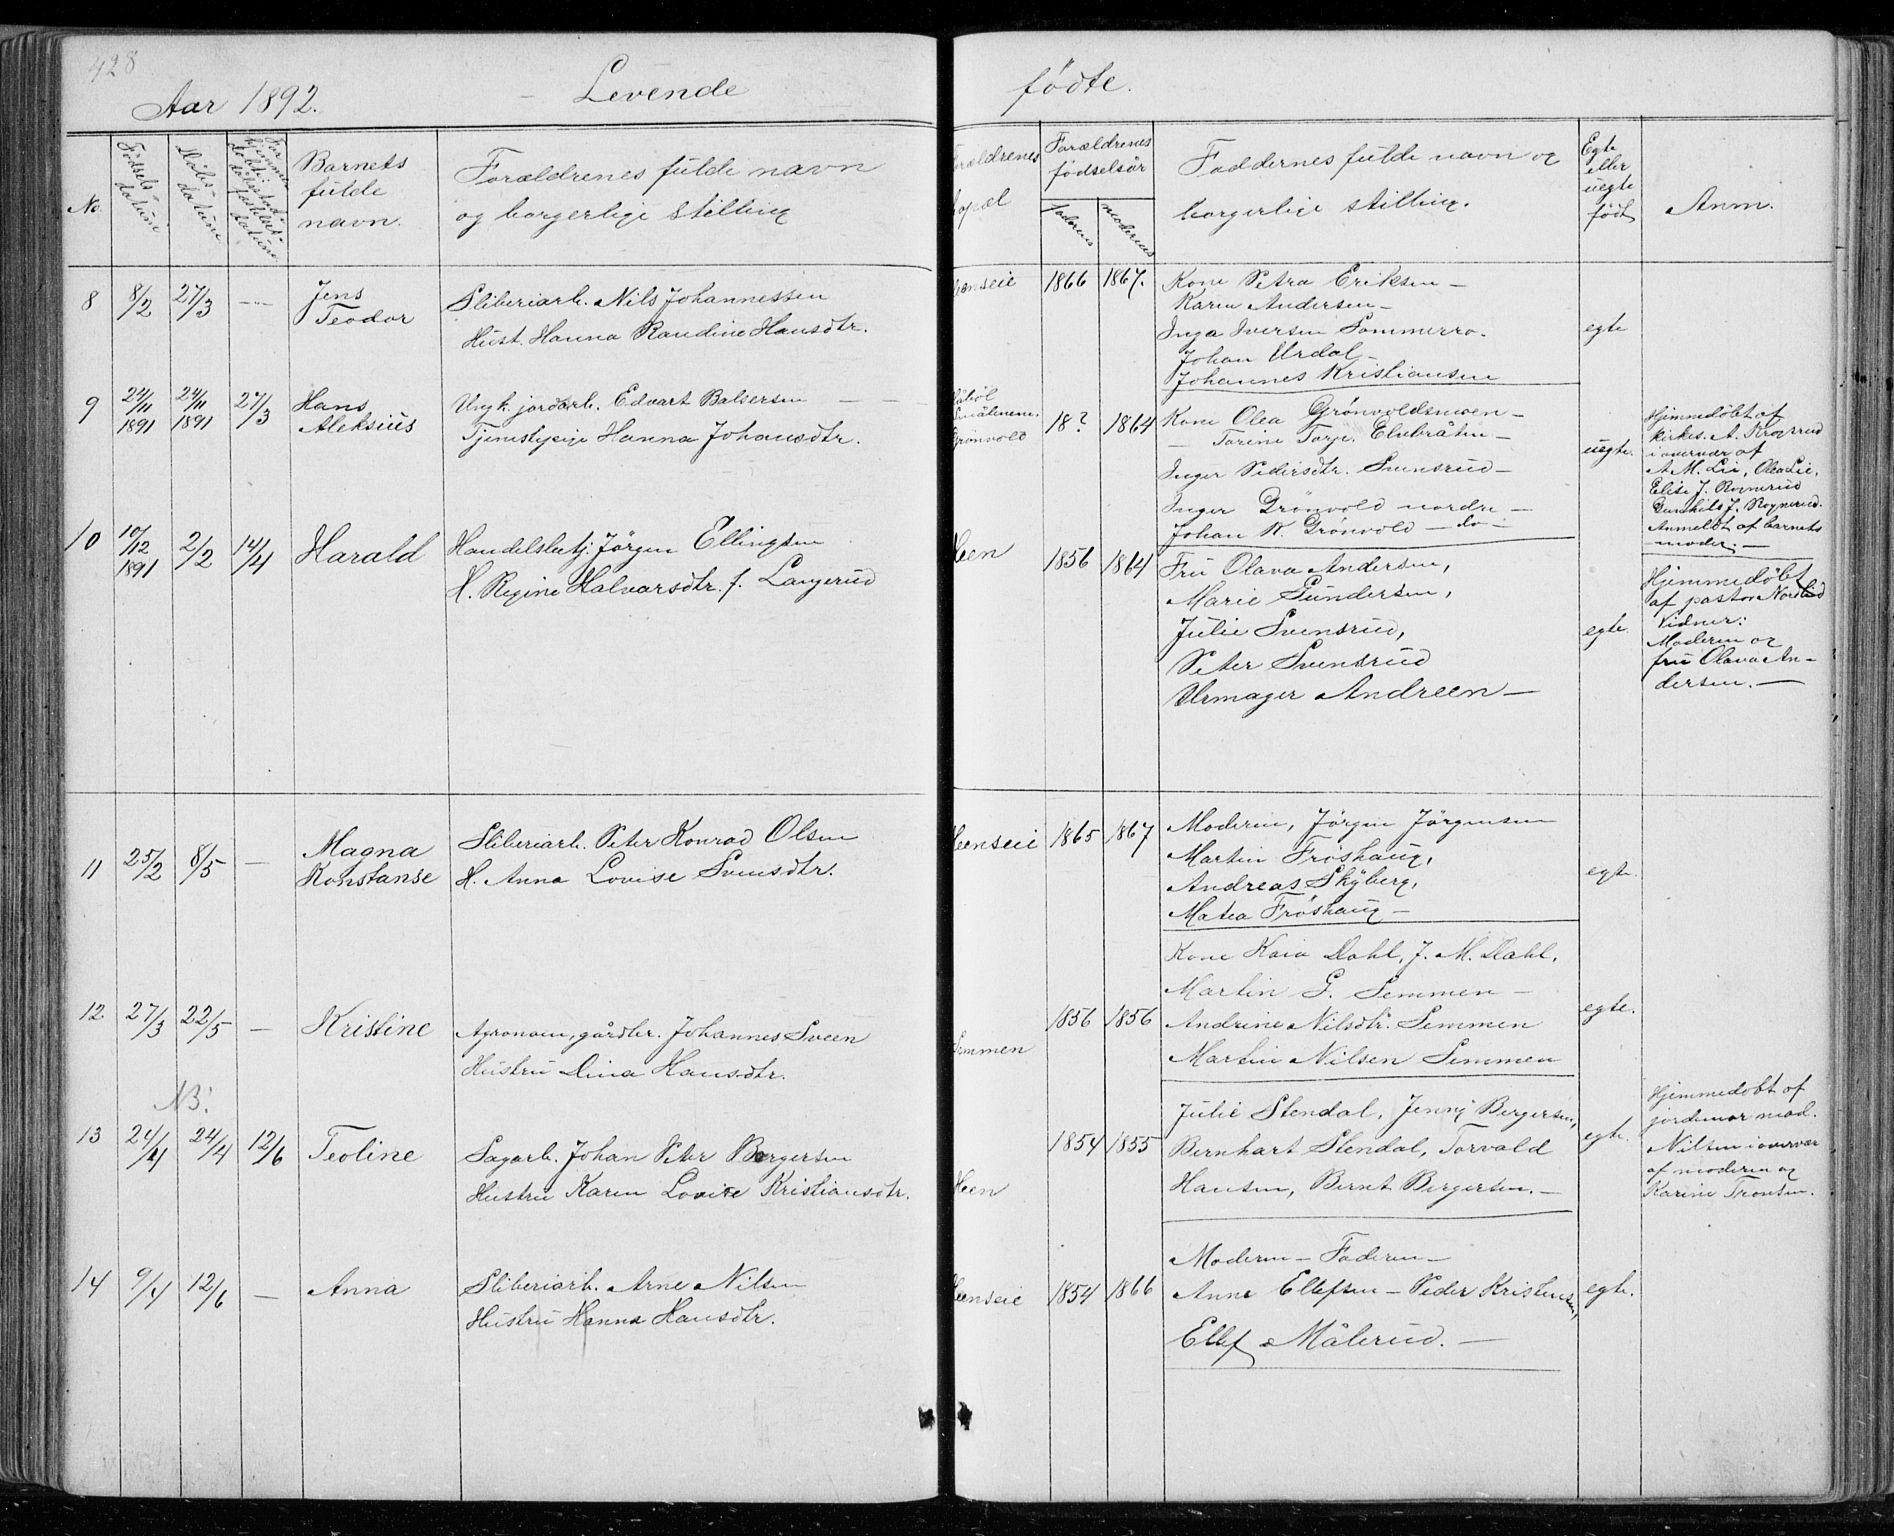 428
Aar 1892. Levende fødte.
No. Fødsels-datum Dåbs-datum Barnets fulde navn. Forældrenes fulde navn og borgerlige stilling
Forældrenes bopæl Forældrenes fødselsår Faderens Moderens Faddernes fulde navn og borgerlige stilling. Egte eller uegte født Anm.
8 8/2 27/3 — Jens Teodor
Sliberiarb. Nils Johannessen
Hust. Hanna Randine Hansdtr.
Hønseie 1866 1867.
Kone Petra Eriksen —
Karen Andersen —
Inga Iversen Sommerro.
Johan Urdal —
Johannes Kristiansen
egte
9 24/11 1891 24/11 1891 27/3 Hans Aleksius
Ungk. jordarb. Edvart Balsersen
Tjenestepige Hanna Johansdtr.
Smålenene.
Grönvold
18? 1864
Kone Olea Grönvoldsmoen —
— Torine Torge. Elvebråten —
Inger Pedersdtr. Svensrud —
Inger Grönvold nordre —
Johan N. Grönvold — do —
uegte.
Hjemmedøbt af
kirkes. A. Kragsrud
i overvær af
A. M. Lie, Olea Lie,
Elise J. Rognerud
Gunhild J. Rognerud.
Anmeldt af barnets
moder. —
10 10/12 1891 2/2 14/4 Harald
Handelsbetj. Jörgen Ellingsen
H. Regine Halvorsdtr. f. Langerud
Heen 1856 1864
Fru Olava Andersen,
Marie Gundersen,
Julie Svensrud,
Peter Svensrud
Urmager Andreen —
egte.
Hjemmedøbt
af pastor Nordlid
Vidner:
Moderen og
fru Olava An-
dersen. —
11 25/2 8/5 — Magna Konstanse
Sliberiarb. Peter Konrad Olsen
H. Anna Lovise Svensdtr.
Heenseie 1865 1867
Moderen, Jörgen Jörgensen
Martin Frøshaug,
Andreas Skyberg,
Matea Frøshaug —
egte.
12 27/3 22/5 — Kristine
Agronom, gårdbr. Johannes Sveen
Hustru Dina Hansdtr.
Semmen 1856 1856
Kone Kaia Dahl, J. M. Dahl,
Martin G. Semmen —
Andrine Nilsdtr. Semmen
Martin Nilsen Semmen
egte.
NB!
13 24/4 24/4 12/6 Teoline
Sagarb. Johan Peter Bergersen
Hustru Karen Lovise Kristiansdtr.
Heen 1854 1855
Julie Stendal, Jenny Bergersen,
Bernhart Stendal, Torvald
Hansen, Bernt Bergersen. —
egte.
Hjemmedøbt af
jordemor mad.
Nilsen i overvær
af moderen og
Karine Tronsen.
14 9/4 12/6 — Anna
Sliberiarb. Arne Nilsen
Hustru Hanna Hansdtr.
Heenseie 1854 1866
Moderen — Faderen —
Anne Ellefsen — Peder Kristensen,
Ellef Målerud. —
egte.